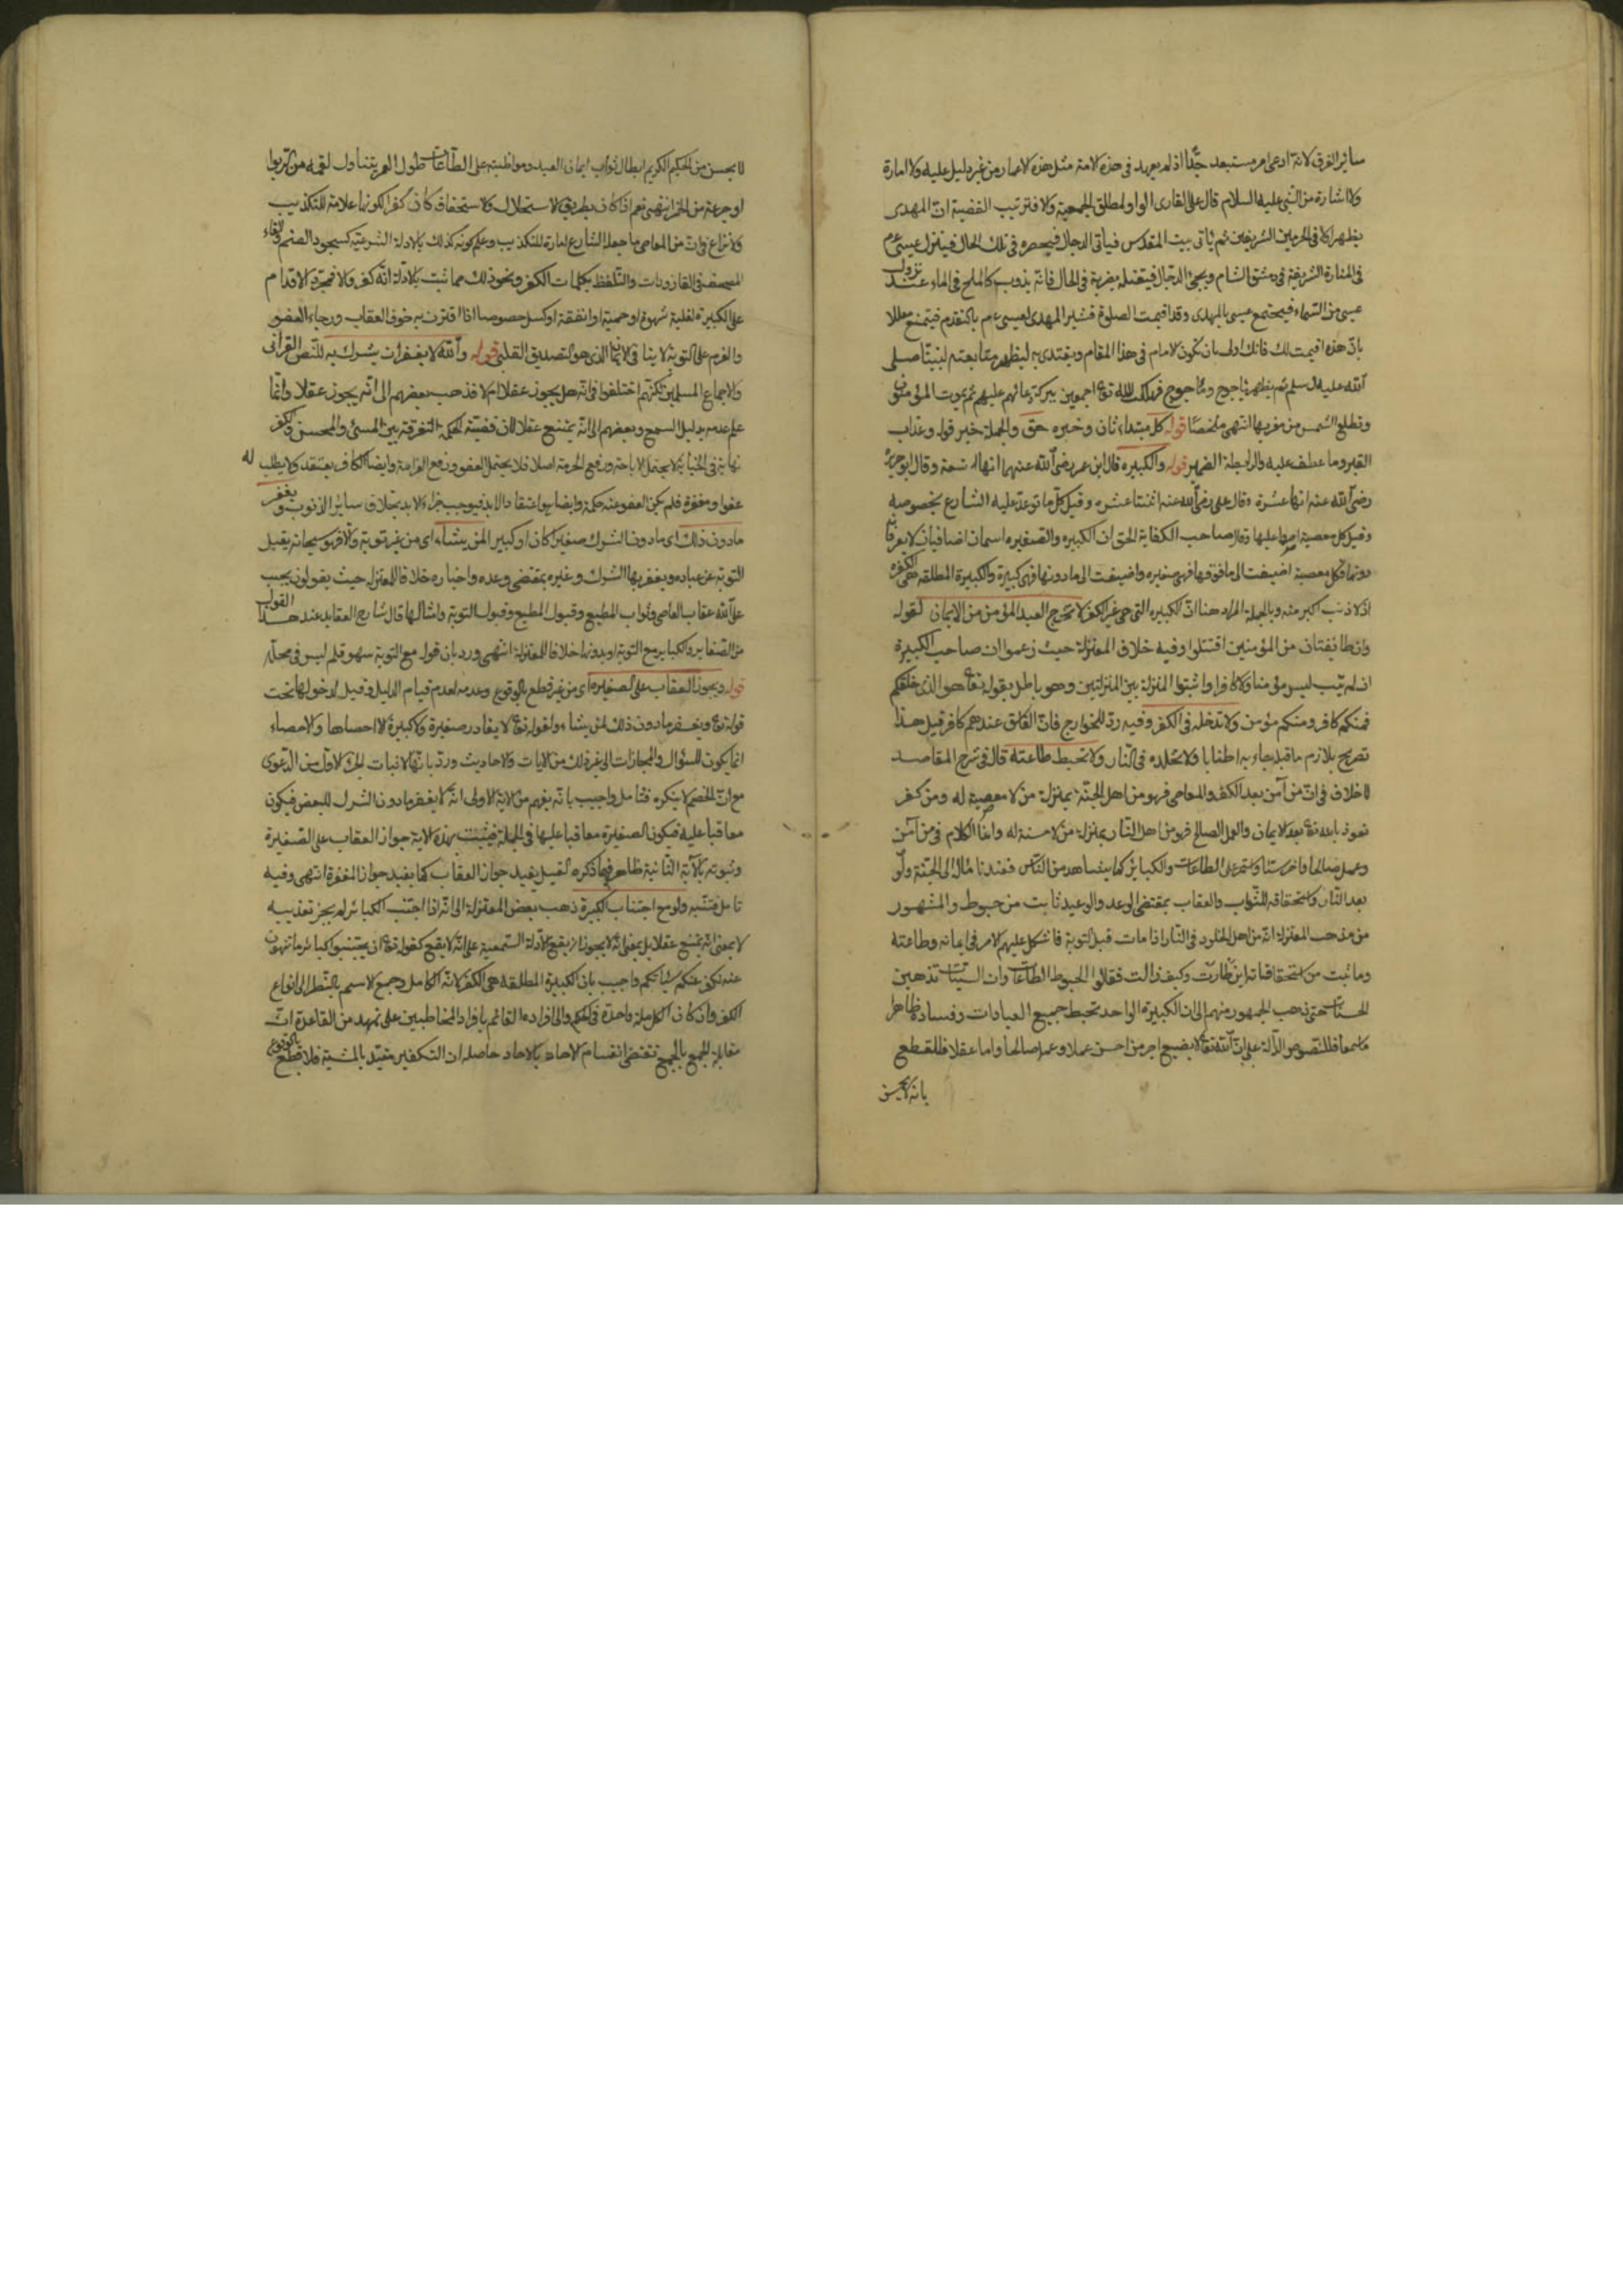 سائر الفرق لانه ادعى امر مستبعد جدا اذ لم يعهد فى هذه الامة مثل هذه الاعمار من غير دليل عليه ولا امارة
ولا اشارة من النبى عليه السلام قال على القارى الواو لمطلق الجمعية والا فترتيب القضية ان المهدى
يظهر اولا فى الحرمين الشريفين ثم ياتى بيت المقدس فياتى الدجال فيحصره فى تلك الحال فينزل عيسى عم
فى المنارة الشرقية فى دمشق الشام ويجئ الدجال فيقتله بضربة فى الحال فانه يذوب كالملح فى الماء عند نزول
عيسى من السماء فيجتمع عيسى بالمهدى وقد اقيمت الصلوة فيشير المهدى لعيسى عم بالتقدم فيمتنع معللا
بان هذه اقيمت لك فانك اولى بان تكون الامام فى هذا المقام ويقتدى به ليظهر متابعته لنبينا صلى
الله عليه وسلم ثم يظهر ياجوج وماجوج فيهلك الله تع اجمعين ببركة دعائهم عليهم ثم يموت المؤمنون
وتطلع الشمس من مغربها انتهى ملخصا قوله كل مبتداء ثان وخبره حق والجملة خبر قوله وعذاب
القبر وما عطف عليه والرابطة الضمير قوله والكبيره قال ابن عمر رضى الله عنهما انها تسعة وقال ابو هريرة
رضى الله عنه انها عشرة وقال على رضى الله عنه اثنتا عشره وقيل كل ما توعد عليه الشارع بخصوصه
وقيل كل معصية اصر عليها وقال صاحب الكفاية الحق ان الكبيره والصغيره اسمان اضافيان لا يعرفان
بذاتهما فكل معصية اضيفت الى ما فوقها فهى صغيره واضيفت الى ما دونها فهى كبيرة والكبيرة المطلقه هى الكفر
اذ لا ذنب اكبر منه وبالجملة المراد هنا ان الكبيره التى هى غير الكفر لا تخرج العبد المؤمن من الايمان لقوله
وان طائفتان من المؤمنين اقتتلوا وفيه خلاف المعتزلة حيث زعموا ان صاحب الكبيرة
ان لم يتب ليس مؤمنا ولا كافرا واثبتوا المنزلة بين المنزلتين وهو باطل بقوله تع هو الذى خلقكم
فمنكم كافر ومنكم مؤمن ولا تدخله فى الكفر وفيه رد للخوارج فان الفاسق عندهم كافر قيل هذا
تصريح بلازم ما قبله جاء به اطنابا ولا تخلده فى النار ولا تحبط طاعته قال فى شرح المقاصد
لا خلاف فى ان من آمن بعد الكفر والمعاصى فهو من اهل الجنة بمنزلة من لا معصية له ومن كفر
نعوذ بالله تع بعد الايمان والعمل الصالح فهو من اهل النار بمنزلة من لا حسنة له وانما الكلام فى من آمن
وعمل صالحا واخر سيئا واستمر على الطاعات والكبائر كما يشاهد من الناس فعندنا مآله الى الجنة ولو
بعد النار واستحقاقه للثواب والعقاب بمقتضى الوعد والوعيد ثابت من حبوط والمشهور
من مذهب المعتزلة انه من اهل الخلود فى النار اذا مات قبل التوبة فاشكل عليهم الامر فى ايمانه وطاعته
وما ثبت من استحقاقاته اين طارت وكيف زالت فقالوا الحبوط الطاعات وان السيئات تذهبن
الحسنات حتى ذهب الجمهور منهم الى ان الكبيره الواحد تحبط جميع العبادات وفساده ظاهر
اما سمعا فللنصوص الدالة على ان الله تع لا يضيع اجر من احسن عملا وعمل صالحا واما عقلا فللقطع
بانه لا يحسن
لا يحسن من الحكيم الكريم ابطال ثواب ايمان العبد ومواظبته على الطاعات طول العمر بتناول لقمة من الربوا
او جرعة من الخمر انتهى نعم اذا كان بطريق الاستحلال والاستخفاف كان كفرا لكونها علامة للتكذيب
ولا نزاع فى ان من المعاصى ما جعله الشارع امارة للتكذيب وعلم كونه كذلك بالادلة الشرعيه كسجود الصنم والقاء
المصحف فى القازورات والتلفظ بكلمات الكفر ونحو ذلك مما ثبت بالادلة انه كفر والا فمجرد الاقدام
على الكبيره لغلبة شهوة او حمية او انفقة او كسل خصوصا اذا اقترن به خوف العقاب ورجاء العفو
والعزم على التوبة لا ينافى الايمان الذى هو التصديق القلبى قوله والله لا يغفر ان يشرك به للنص القرآنى
والاجماع المسلمين لكنهم اختلفوا فى انه هل يجوز عقلا ام لا فذهب بعضهم الى انه يجوز عقلا وانما
علم عدمه بدليل السمع وبعضهم الى انه يمتنع عقلا لان قضية الحكمة التفرقة بين المسئ والمحسن والكفر
نهاية فى الجناية لا يحتمل الاباحة ورفع الحرمة اصلا فلا يحتمل العفو ورفع الغرامة وايضا الكافر يعتقد ولا يطلب له
عفوا ومغفرة فلم يكن العفو عنه حكمة وايضا هو اعتقاد الابد فيوجب جزاء الابد بخلاف سائر الذنوب ويغفر
ما دون ذلك اى ما دون الشرك صغيرا كان او كبيرا لمن يشاء اى من غير توبة والا فهو سبحانه يقبل
التوبة عن عباده ويغفر بها الشرك وغيره بمقتضى وعده واخباره خلافا للمعتزلة حيث يقولون يجب
على الله عقاب العاصى وثواب المطيع وقبول المطيع وقبول التوبة وامثالها قال شارح العقايد عند هذا القول
من الصغاير والكباير مع التوبة او بدونها خلافا للمعتزلة انتهى ورد بان قوله مع التوبة سهو قلم ليس فى محله
قوله ويجوز العقاب على الصغيره اى من غير قطع بالوقوع وعدمه لعدم قيام الدليل وقيل لدخولها تحت
قوله تع ويغفر ما دون ذلك لمن يشاء ولقوله تع لا يغادر صغيرة ولا كبيرة الا احصاها والاحصاء
انما يكون للسؤال والمجازات الى غير ذلك من الايات والاحاديث ورد بانها لاثبات الجزء الاول من الدعوى
مع ان الخصم لا ينكره فتامل واجيب بانه يفهم من الاية الاولى انه لا يغفر ما دون الشرك للبعض فيكون
معاقبا عليه فيكون الصغيرة معاقبا عليها فى الجملة فيثبت بهذه الاية جواز العقاب على الصغيرة
وثبوته بالآية الثانية ظاهر فيما ذكره القيل يفيد جواز العقاب كما يفيد جواز المغفرة انتهى وفيه
تامل فتنبه ولو مع اجتناب الكبيرة ذهب بعض المعتزلة الى انه اذا اجتنب الكبائر لم يجز تعذيبه
لا بمعنى انه يمتنع عقلا بل بمعنى انه لا يجوز ان يقع للادلة السمعية على انه لا يقع كقوله تع ان يجتنبوا كبائر ما تنهون
عنه نكفر عنكم سيئاتكم واجيب بان الكبيرة المطلقة هى الكفر لانه الكامل وجمع الاسم بالنظر الى انواع
الكفر وان كان الكل ملة واحدة فى الحكم والى افراده القائم بافراد المخاطبين على تمهيد من القاعدة ان
مقابلة الجمع بالجمع تقتضى انقسام الاحاد بالاحاد حاصله ان التكفير مقيد بالمشية فلا قطع بالوقوع